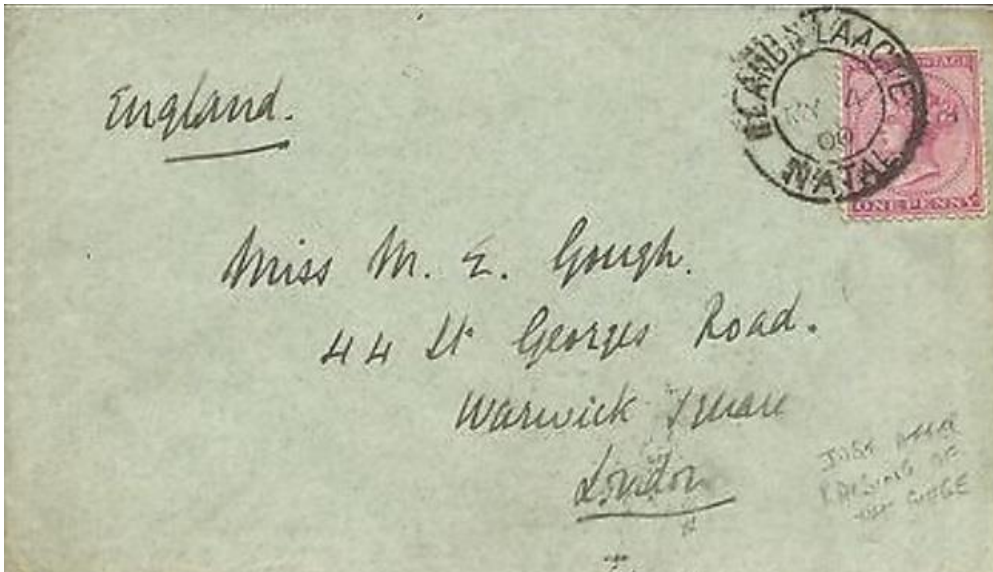 England.
ELANDSLAAGTE
4
00
NATAL
POSTAGE
ONE PENNY
Miss M. E. Gough.
44 St Georges Road.
Warwick Square
London
JUST AFTER
RAISING OF
THE SIEGE